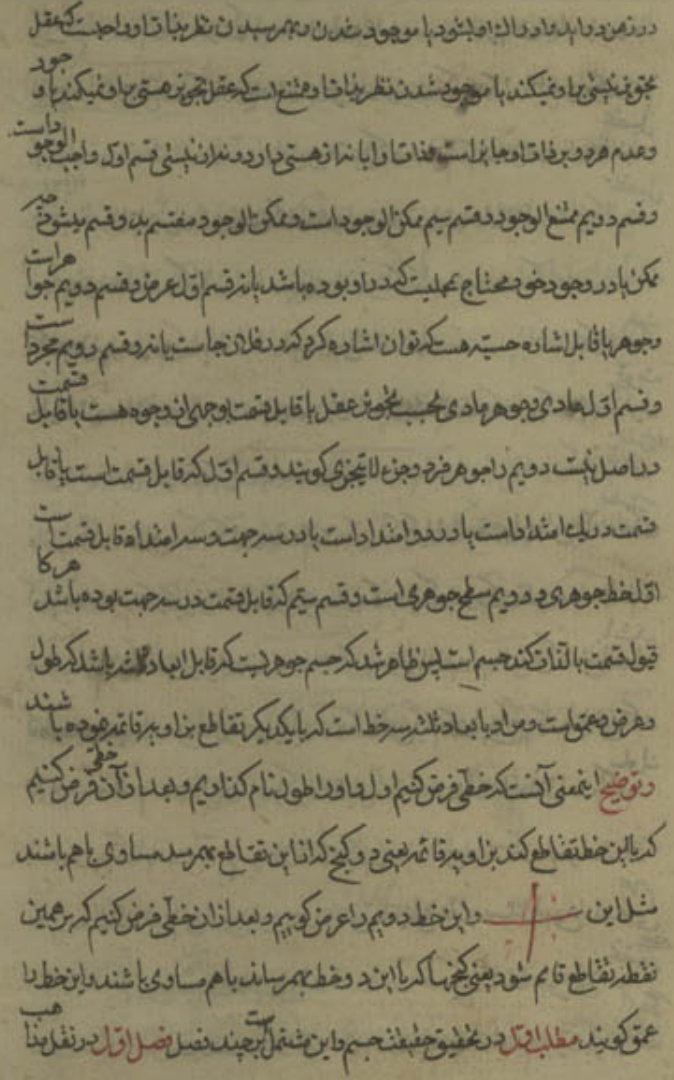 در ذهن درآید و ادراک او بشود یا موجود شدن و بهمرسیدن نظر بذات او واجبست که عقل
تجویز نیستی باو نمیکند یا موجود شدن نظر بذات او ممتنع است که عقل تجویز هستی باو نمیکند یا وجود
و عدم هر دو بر ذات او جایز است فذات او ابا نه از هستی دارد و نه از نیستی قسم اول واجب الوجود است
و قسم دویم ممتنع الوجود و قسم سیم ممکن الوجود است و ممکن الوجود منقسم بدو قسم میشود چه
ممکن یا در وجود خود محتاج بمحلیست که در او بوده باشد یا نه قسم اول عرض و قسم دویم جواهر است
و جوهر یا قابل اشاره حسیه هست که توان اشاره کرد که در فلان جا است یا نه و قسم دویم مجرد است
و قسم اول مادی و جوهر مادی بحسب تجویز عقل یا قابل قسمت بوجهی از وجوه هست یا قابل قسمت
در اصل نیست دویم را جوهر فرد و جزء لا یتجزی گویند و قسم اول که قابل قسمت است یا قابل
قسمت در یک امتداد است یا در دو امتداد است یا در سه جهت و سه امتداد قابل قسمت است
اول خط جوهری و دویم سطح جوهری است و قسم سیم که قابل قسمت در سه جهت بوده باشد هر گاه
قبول قسمت بالذات کند جسم است پس ظاهر شد که جسم جوهریست که قابل ابعاد ثلثه باشد که طول
و عرض و عمق است و مراد بابعاد ثلثه سه خط است که با یکدیگر تقاطع بزاویه قائمه نموده باشند
و توضیح اینمعنی آنست که خطی فرض کنیم اول و او را طول نام گذاریم و بعد از آن خطی فرض کنیم
که با این خط تقاطع کند بزاویه قائمه یعنی دو کنج که از این تقاطع بهمرسد مساوی با هم باشند
مثل این و این خط دویم را عرض گوییم و بعد از آن خطی فرض کنیم که بر همین
نقطه تقاطع قایم شود یعنی کنجها که با این دو خط بهمرساند با هم مساوی باشند و این خط را
عمق گویند مطلب اول در تحقیق حقیقت جسم و این مشتمل است بر چند فصل فصل اول در نقل مذاهب